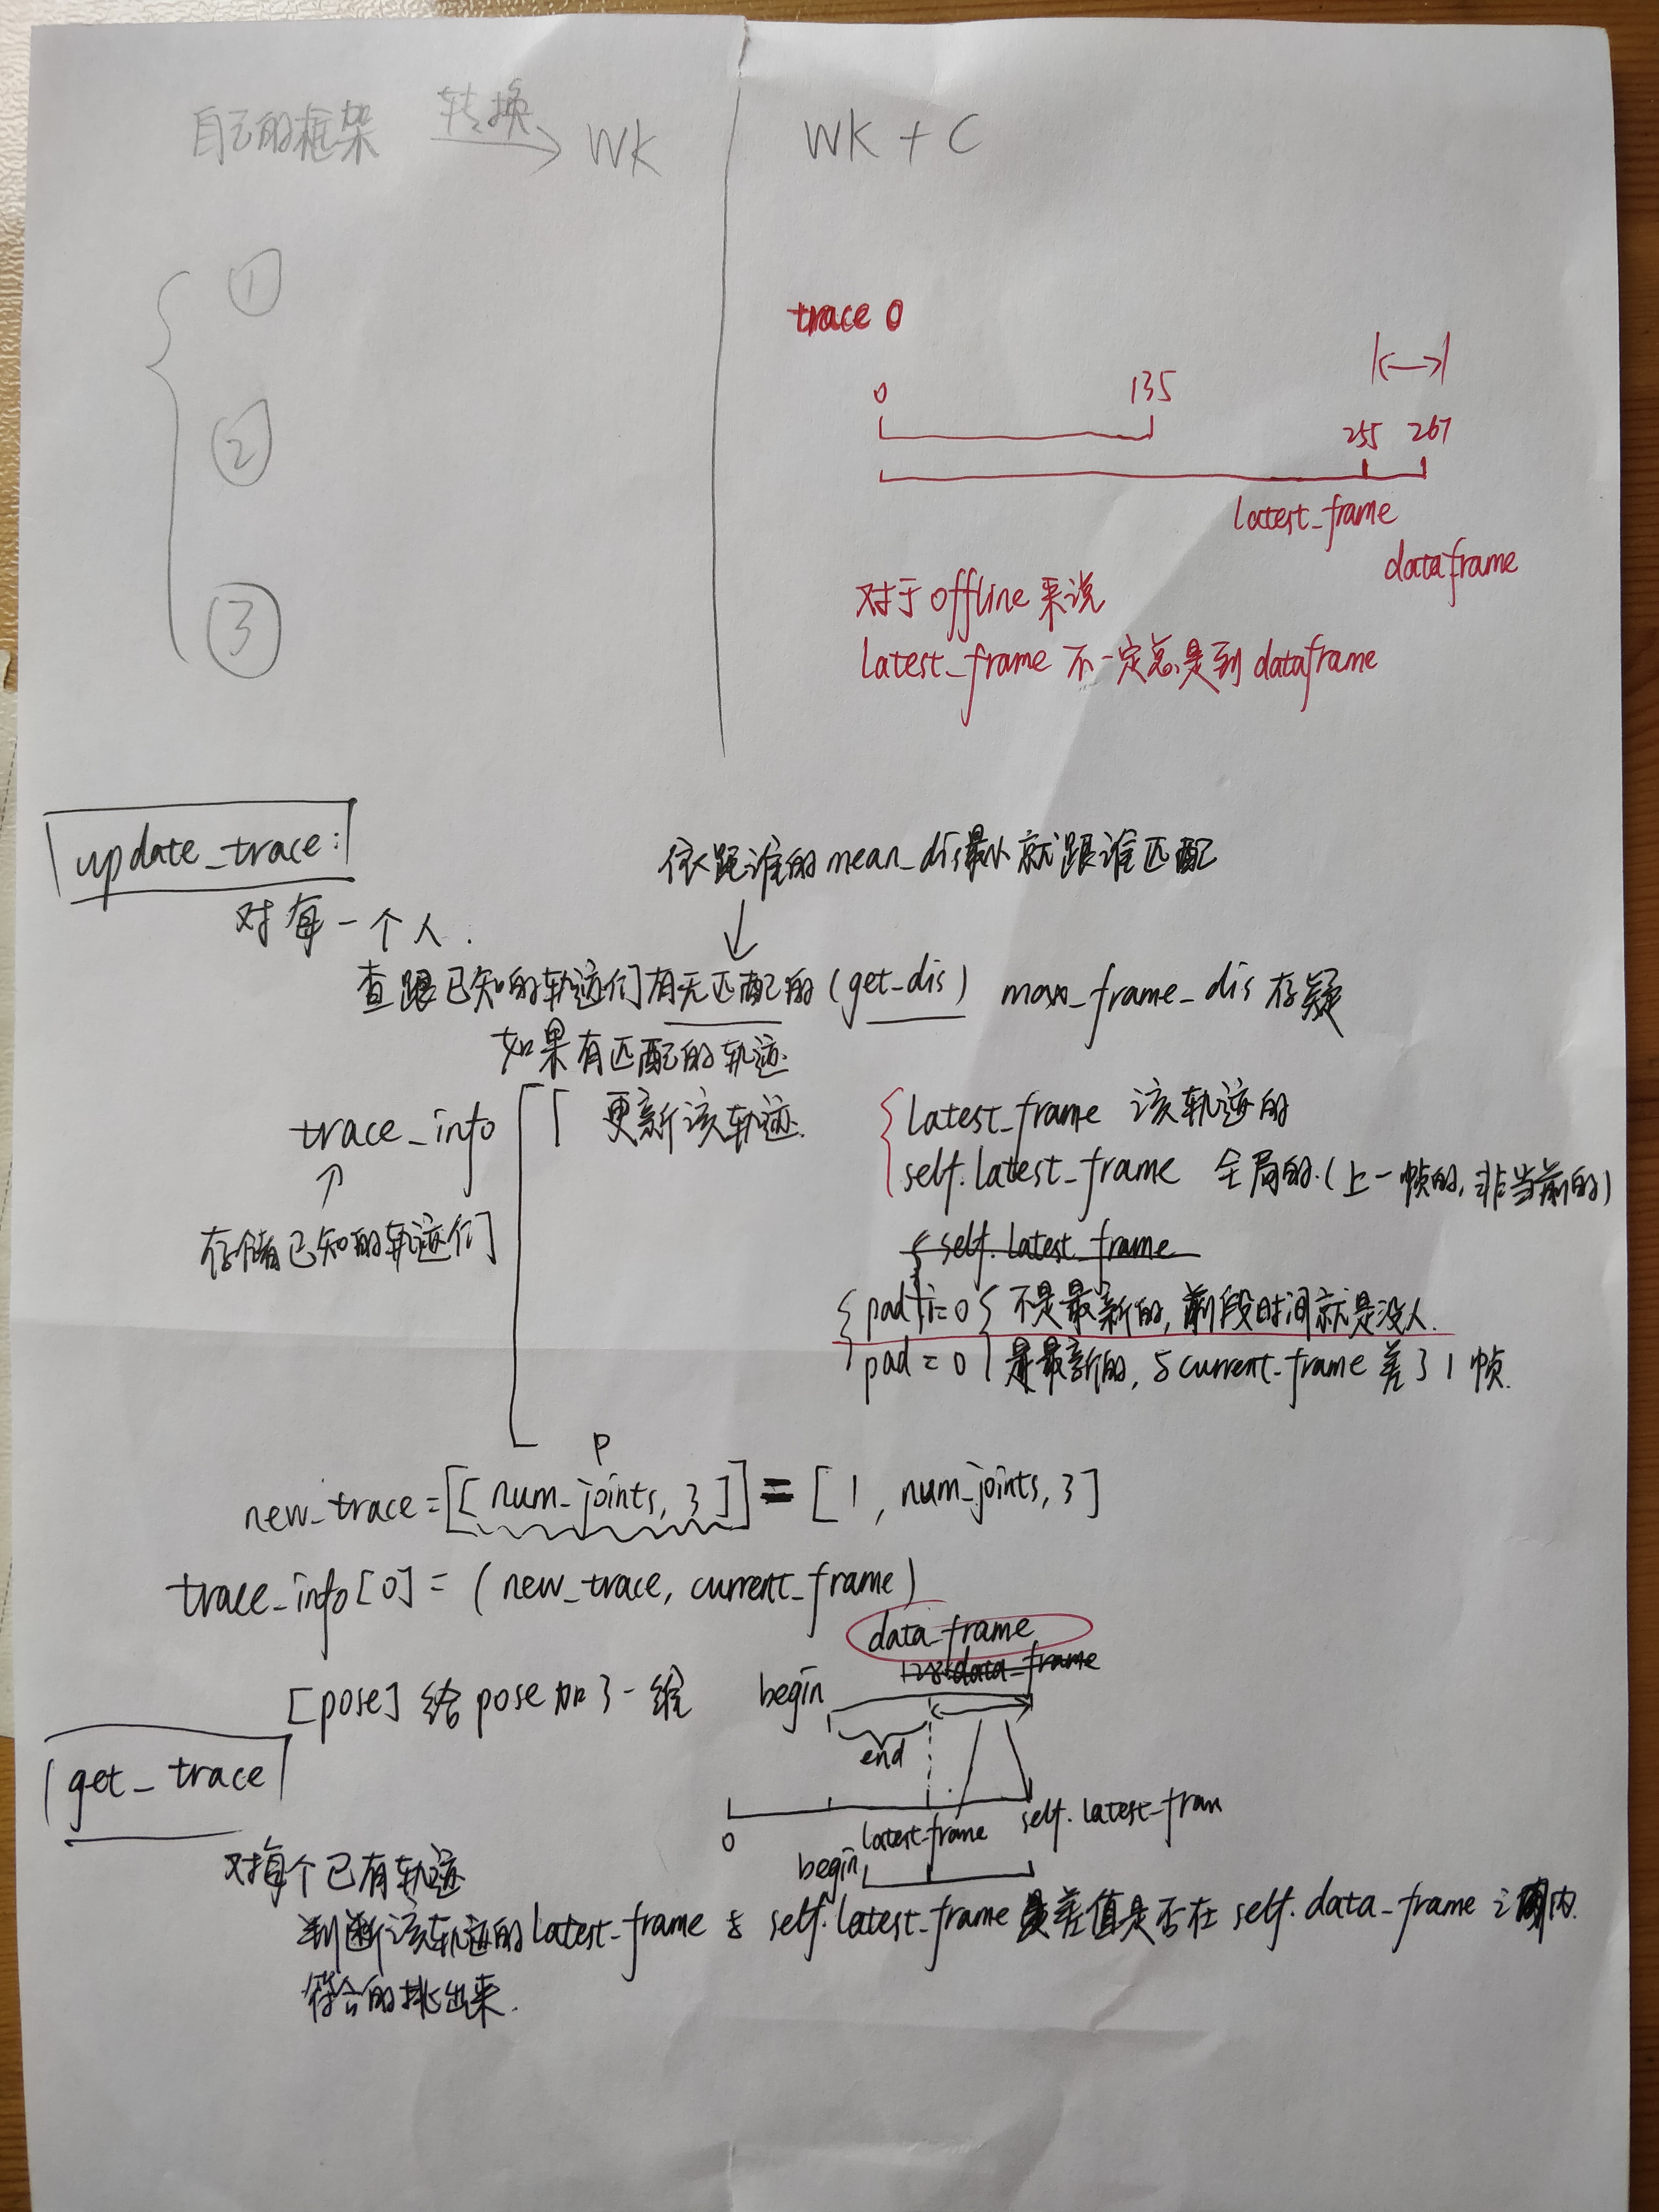 自己的框架 转换 WK
WK + C
①
②
③
trace 0
0 135
255 267
latest_frame
dataframe
对于 offline 来说
latest_frame 不一定总是到 dataframe
update_trace:
依距谁的 mean_dis最小 就跟谁匹配
对每一个人.
查跟已知的轨迹们有无匹配的 (get_dis) max_frame_dis 存疑
如果有匹配的轨迹
trace_info 更新该轨迹.
latest_frame 该轨迹的
self.latest_frame 全局的.(上一帧的, 非当前的)
存储已知的轨迹们
self.latest_frame
pad != 0 不是最新的, 前段时间就是没人.
pad = 0 是最新的, 与 current_frame 差了1帧.
P
new_trace = [[num_joints, 3]] = [1, num_joints, 3]
trace_info[0] = (new_trace, current_frame)
data_frame
data_frame
[pose] 给pose加了一维
begin
end
get_trace
0 latest_frame self.latest_fram
begin
对每个已有轨迹
判断该轨迹的latest_frame 与 self.latest_frame 差值是否在 self.data_frame 之内.
符合的挑出来.